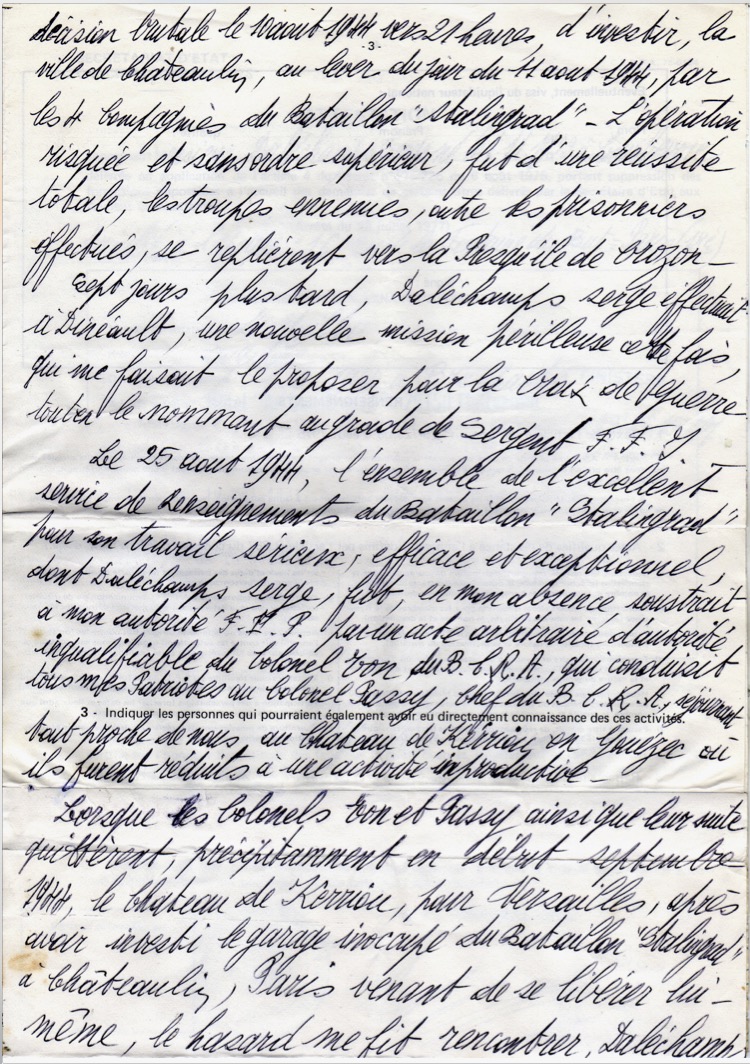 décision brutale le 10 aout 1944 vers 21 heures, d'investir, la
- 3 -
ville de Châteaulin, au lever du jour du 11 aout 1944, par
les 4 Compagnies du Bataillon "Stalingrad" - L'opération
risquée et sans ordre supérieur, fut d'une réussite
totale, les troupes ennemies, outre les prisonniers
effectués, se replièrent vers la Presqu'ile de Crozon -
Sept jours plus tard, Daléchamps serge effectuait
à Dinéault, une nouvelle mission périlleuse cette fois,
qui me faisait le proposer pour la Croix de guerre
tout en le nommant au grade de Sergent F.F.I
Le 25 aout 1944, l'ensemble de l'excellent
service de Renseignements du Bataillon "Stalingrad"
pour son travail sérieux, efficace et exceptionnel,
dont Daléchamps serge, fut, en mon absence soustrait
à mon autorité F.T.P. par un acte arbitraire d'autorité
inqualifiable du Colonel Eon du B.C.R.A., qui conduisit
tous mes Patriotes au Colonel Passy, Chef du B.C.R.A., séjournant
3 - Indiquer les personnes qui pourraient également avoir eu directement connaissance des ces activités.
tout proche de nous au Chateau de Kerriou en Gouézec où
ils furent réduits à une activité improductive -
Lorsque les Colonels Eon et Passy ainsi que leur suite
quittèrent, précipitamment en début septembre
1944, le Chateau de Kerriou, pour Versailles, après
avoir investi le garage inocupé du Bataillon "Stalingrad"
à Châteaulin, Paris venant de se libérer lui-
même, le hasard me fit rencontrer, Daléchamps